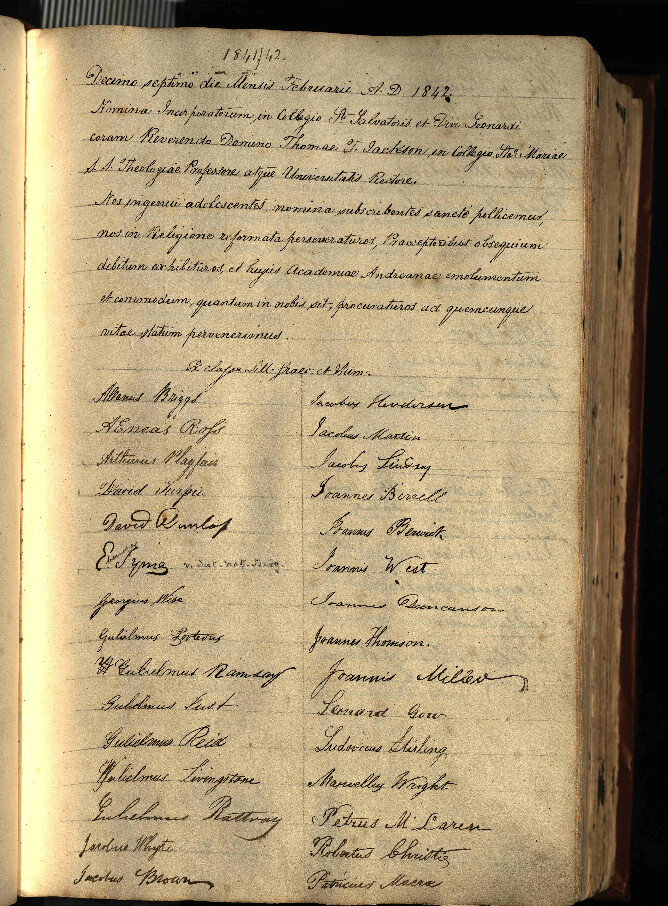 1841/42.
Decimo septimo die Mensis Februarii A.D. 1842.
Nomina Incorporatorum in Collegio Sti. Salvatoris et Divi Leonardi
coram Reverendo Domino Thoma T. Jackson, in Collegio Stae. Mariae
S.S. Theologiae Professore atque Universitatis Rectore.
Nos ingenui adolescentes, nomina subscribentes sancte pollicemur,
nos in Religione reformata perseveraturos, Praeceptoribus obsequium
debitum exhibituros, et hujus Academiae Andreanae emolumentum
et commodum, quantum in nobis sit, procuraturos ad quemcunque
vitae statum pervenerimus.
E classe Litt. Graec. et Hum.
Briggs
AEneas Ross
Arthurus Playfair
David
David Dunlop
Georgius Wise
Gulielmus
Gulielmus Ramsay
Gulielmus Lust
Gulielmus Reid
Gulielmus Livingstone
Gulielmus Rattray
Jacobus Whyte
Jacobus Brown
Jacobus Henderson
Jacobus Martin
Jacobus Lindsay
Joannes Birrell
Joannes Berwick
Joannis West
Joannes Duncanson
Joannes Thomson.
Joannis Miller
Leonard Gow
Ludovicus Stirling
Maxwellus Wright
Petrus McLaren
Robertus Christie
Patricius Macra